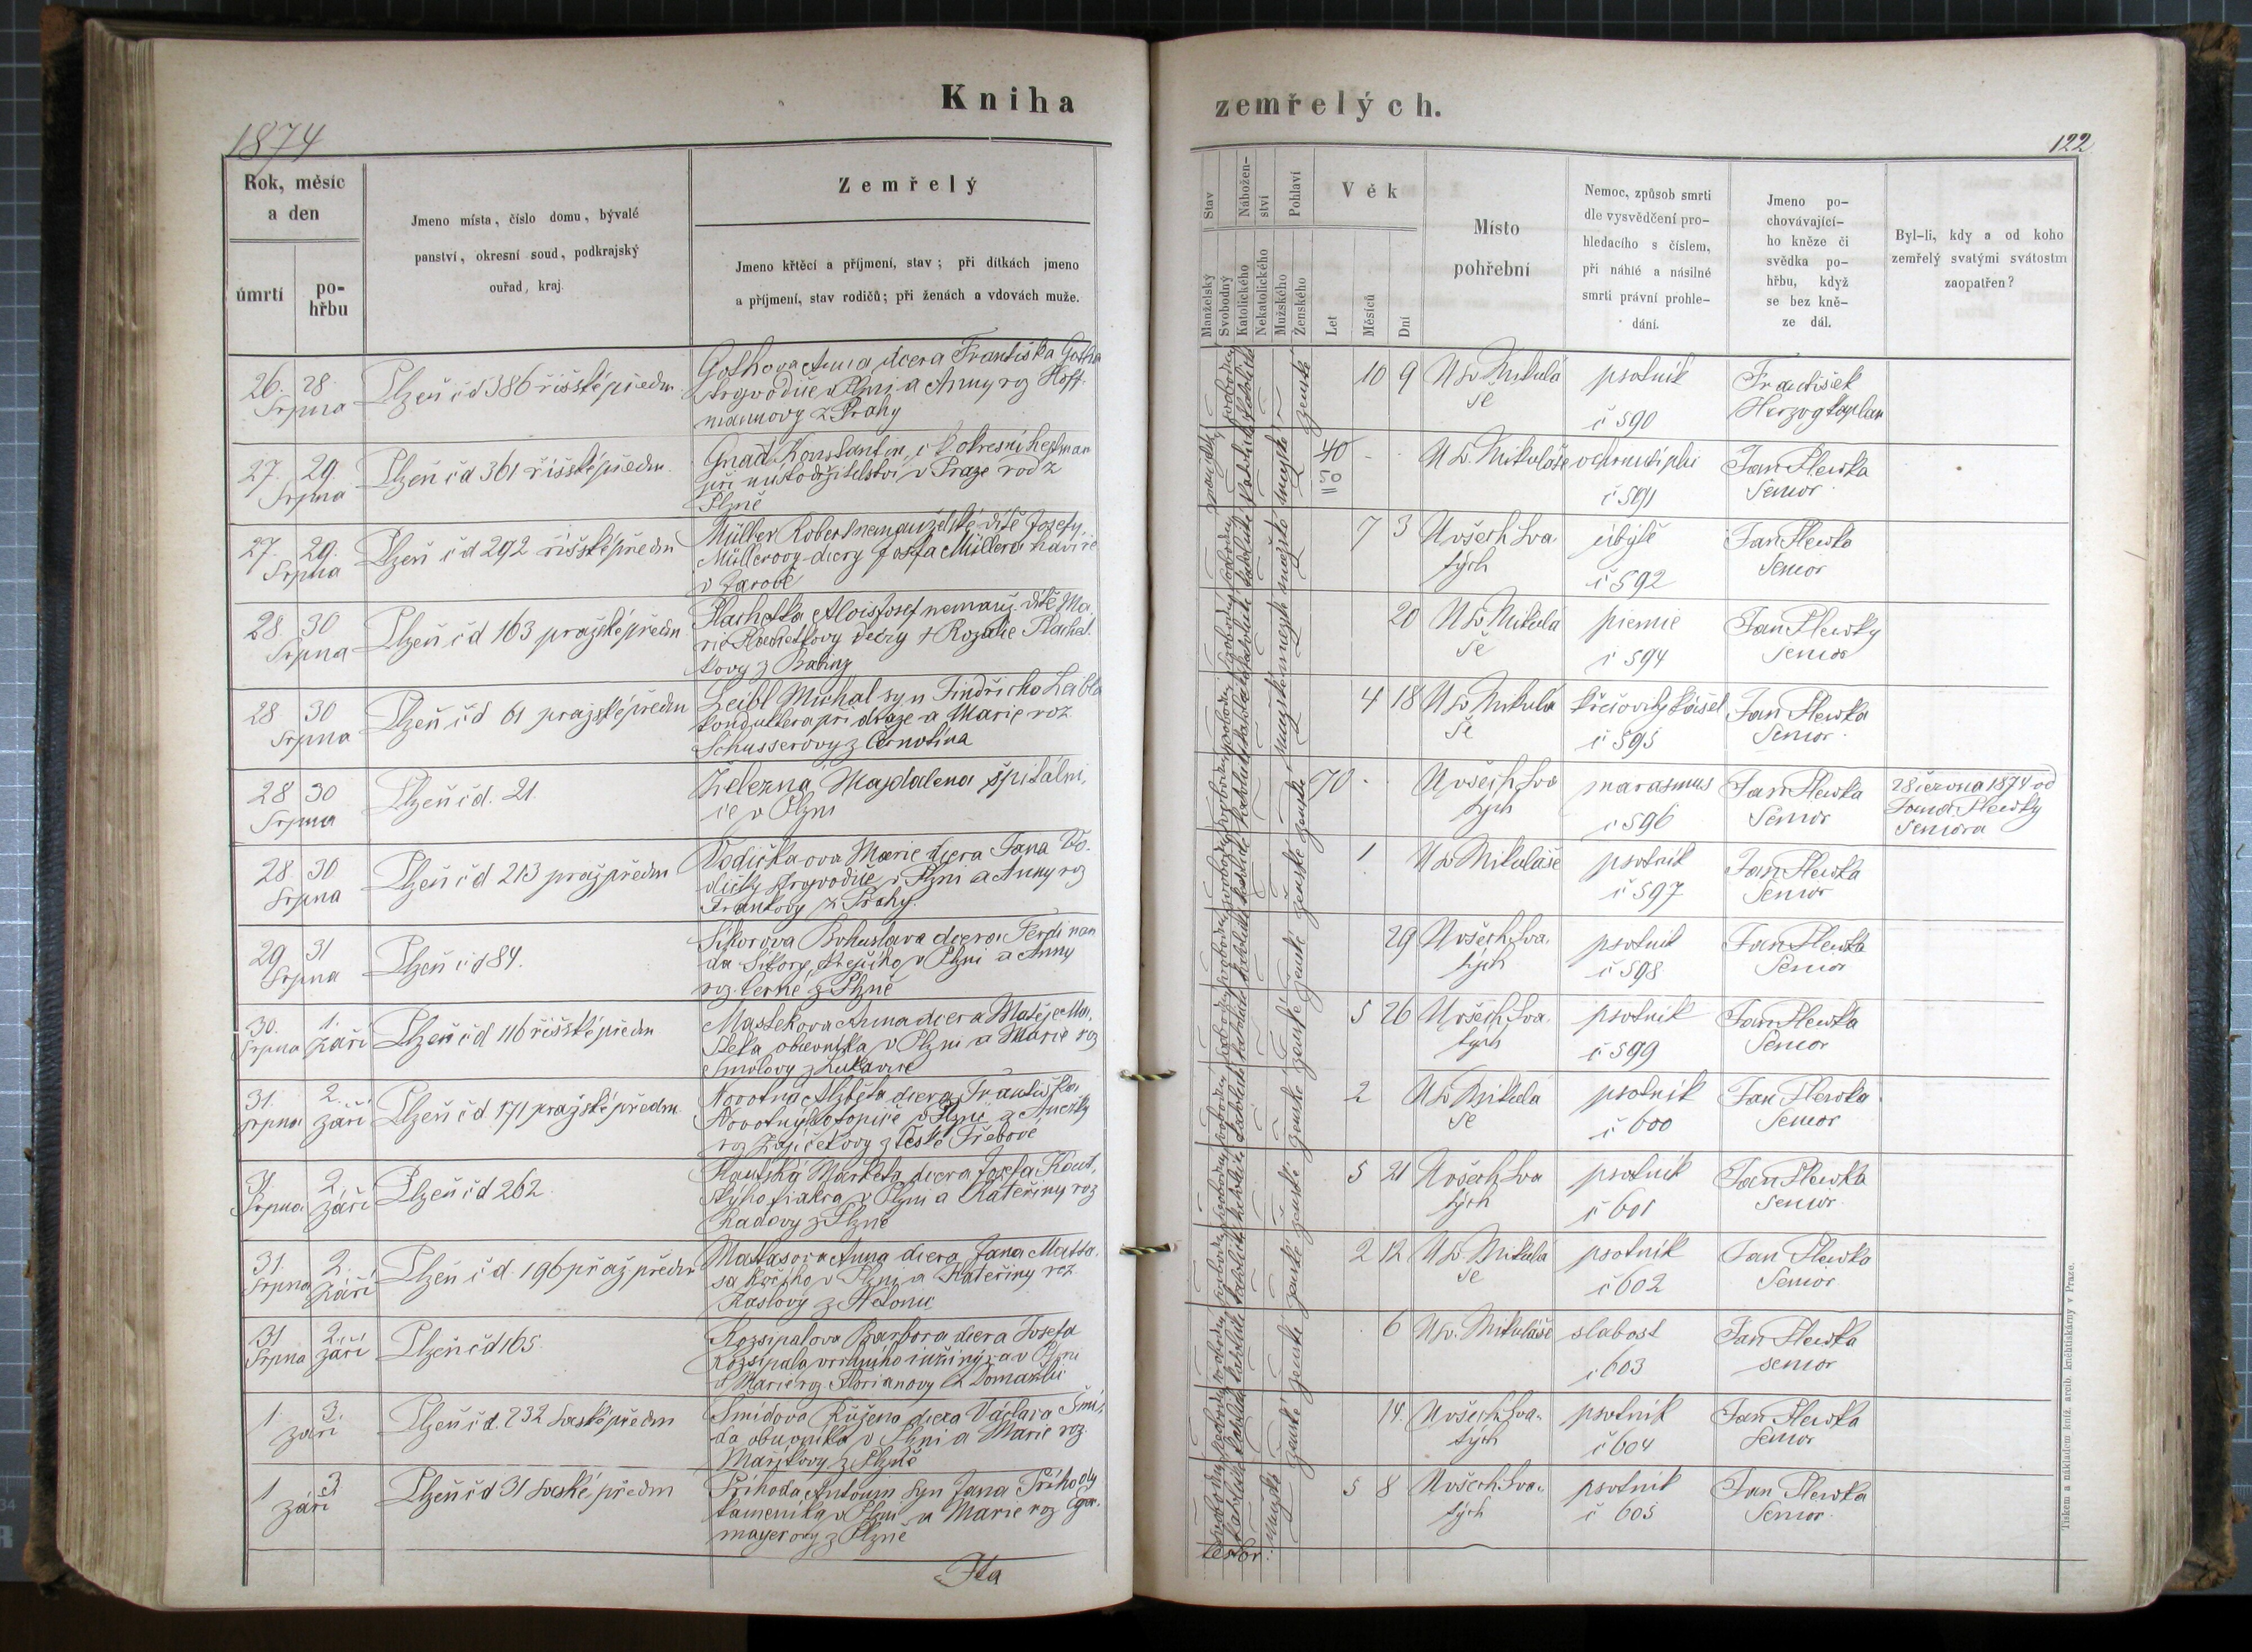 Kniha
zemřelých.
1874
122
Rok, měsíc
a den
úmrtí
po-
hřbu
Jmeno místa, číslo domu, bývalé
panství, okresní soud, podkrajský
ouřad, kraj.
Zemřelý
Jmeno křtěcí a příjmení, stav; při dítkách jmeno
a příjmení, stav rodičů; při ženách a vdovách muže.
Stav
Manželský
Svobodný
Nábožen-
ství
Katolického
Nekatolického
Pohlaví
Mužského
Ženského
Věk
Let
Měsíců
Dní
Místo
pohřební
Nemoc, způsob smrti
dle vysvědčení pro-
hledacího s číslem,
při náhlé a násilné
smrti právní prohle-
dání.
Jmeno po-
chovávající-
ho kněze či
svědka po-
hřbu, když
se bez kně-
ze dál.
Byl-li, kdy a od koho
zemřelý svatými svátostmi
zaopatřen?
26. 28.
Srpna
Plzeň čd 386 říšské předm.
Gothova Anna dcera Františka Gotha
strojvodiče v Plzni a Anny roz Hoff-
mannovy z Prahy
10 9
U sv Mikulá
še
psotník
č 590
František
Herzog kaplan
27. 29.
Srpna
Plzeň čd 361 říšské předm.
Gnad Konstantin, c k okresní hejtman
při místodržitelství v Praze rod z
Plzně
40
U sv. Mikuláše
č 591
Jan Slewka
Senior
27. 29.
Srpna
Plzeň čd 292 říšské předm
Müller Robert nemanželské dítě Josefy
Müllerovy dcery Josefa Müllera havíře
7 3
U všech Sva
tých
úbytě
č 592
Jan Slewka
Senior
28 30
Srpna
Plzeň čd 163 pražské předm
Plachetka Alois Josef nemanž. dítě Ma
rie Plachetkovy dcery + Rozalie Plachet
kovy z
20
U sv Mikulá
še
piemie
č 594
Jan Slewky
Senior
28 30
Srpna
Plzeň čd 61 pražské předm
Leibl Michal syn Jindřicha Leibla
konduktera při dráze a Marie roz
Schusserovy z Černotína
4 18
U sv Mikulá
še
křečovitý kašel
č 595
Jan Slewka
Senior
28 30
Srpna
Plzeň čd. 21.
Železná Majdalena špitálni,
ce v Plzni
70
U všech Sva
tých
marasmus
č 596
Jan Slewka
Senior
28 června 1874 od
Jana Slewky
Seniora
28. 30
Srpna
Plzeň čd 213 praž předm
Vodičkaova Marie dcera Jana Vo-
dičky strojvodiče v Plzni a Anny roz
Frankovy z Prahy.
1
U sv Mikuláše
psotník
č 597
Jan Slewka
Senior
29 31
Srpna
Plzeň čd 84.
Sikorova Bohuslava dcera Ferdinan
da Sikory, v Plzni a Anny
roz. Černé z Plzně
29
U všech Sva
tých
psotník
č 598
Jan Slewka
Senior
30. 1.
Srpna září
Plzeň čd 116 říšské předm
Mastekova Anna dcera Matěje Ma,
steka obuvníka v Plzni a Marie roz
Smolovy z Lukavice
5 26
U všech Sva
tých
psotník
č 599
Jan Slewka
Senior
31. 2.
srpna září
Plzeň čd 171 pražské předm.
Novotná Alžběta dcera Františka
Novotný v Plzni z Anežky
roz Zajíčekovy z České Třebové
2
U sv Mikulá
še
psotník
č 600
Jan Slewka
Senior
31 2.
Srpna září
Plzeň čd 262
Kautská Marketa dcera Josefa Kaut,
ského fiakra v Plzni a Kateřiny roz
Radovy z Plzně
5 21
U všech Sva
tých
psotník
č 601
Jan Slewka
Senior
31. 2.
Srpna září
Plzeň čd. 196 praž předm
Matasova Anna dcera Jana Mata-
sa kočího v Plzni a Kateřiny roz
2 12
U sv. Mikulá
še
psotník
č 602
Jan Slewka
Senior
31 2.
Srpna září
Plzeň čd 165
Rozsipalova Barbora dcera Josefa
Rozsipala vrchního inžinýra v Plzni
a Marie roz Florianovy z Domažlic
6
U sv. Mikuláše
slabost
č 603
Jan Slewka
senior
1 3.
září
Plzeň čd. 232 saské předm
Šmidova Růžena dcera Václava Šmi,
da obuvníka v Plzni a Marie roz.
z Plzně
14.
U všech Sva-
tých
psotník
č 604
Jan Slewka
Senior
1 3
září
Plzeň čd 31 saské předm
Příhoda Antonín syn Jana Příhody
kameníka v Plzni a Marie roz
mayerovy z Plzně
5 8
U všech Sva-
tých
psotník
č 605
Jan Slewka
Senior
Tiskem a nákladem kníž. arcib. knihtiskárny v Praze.